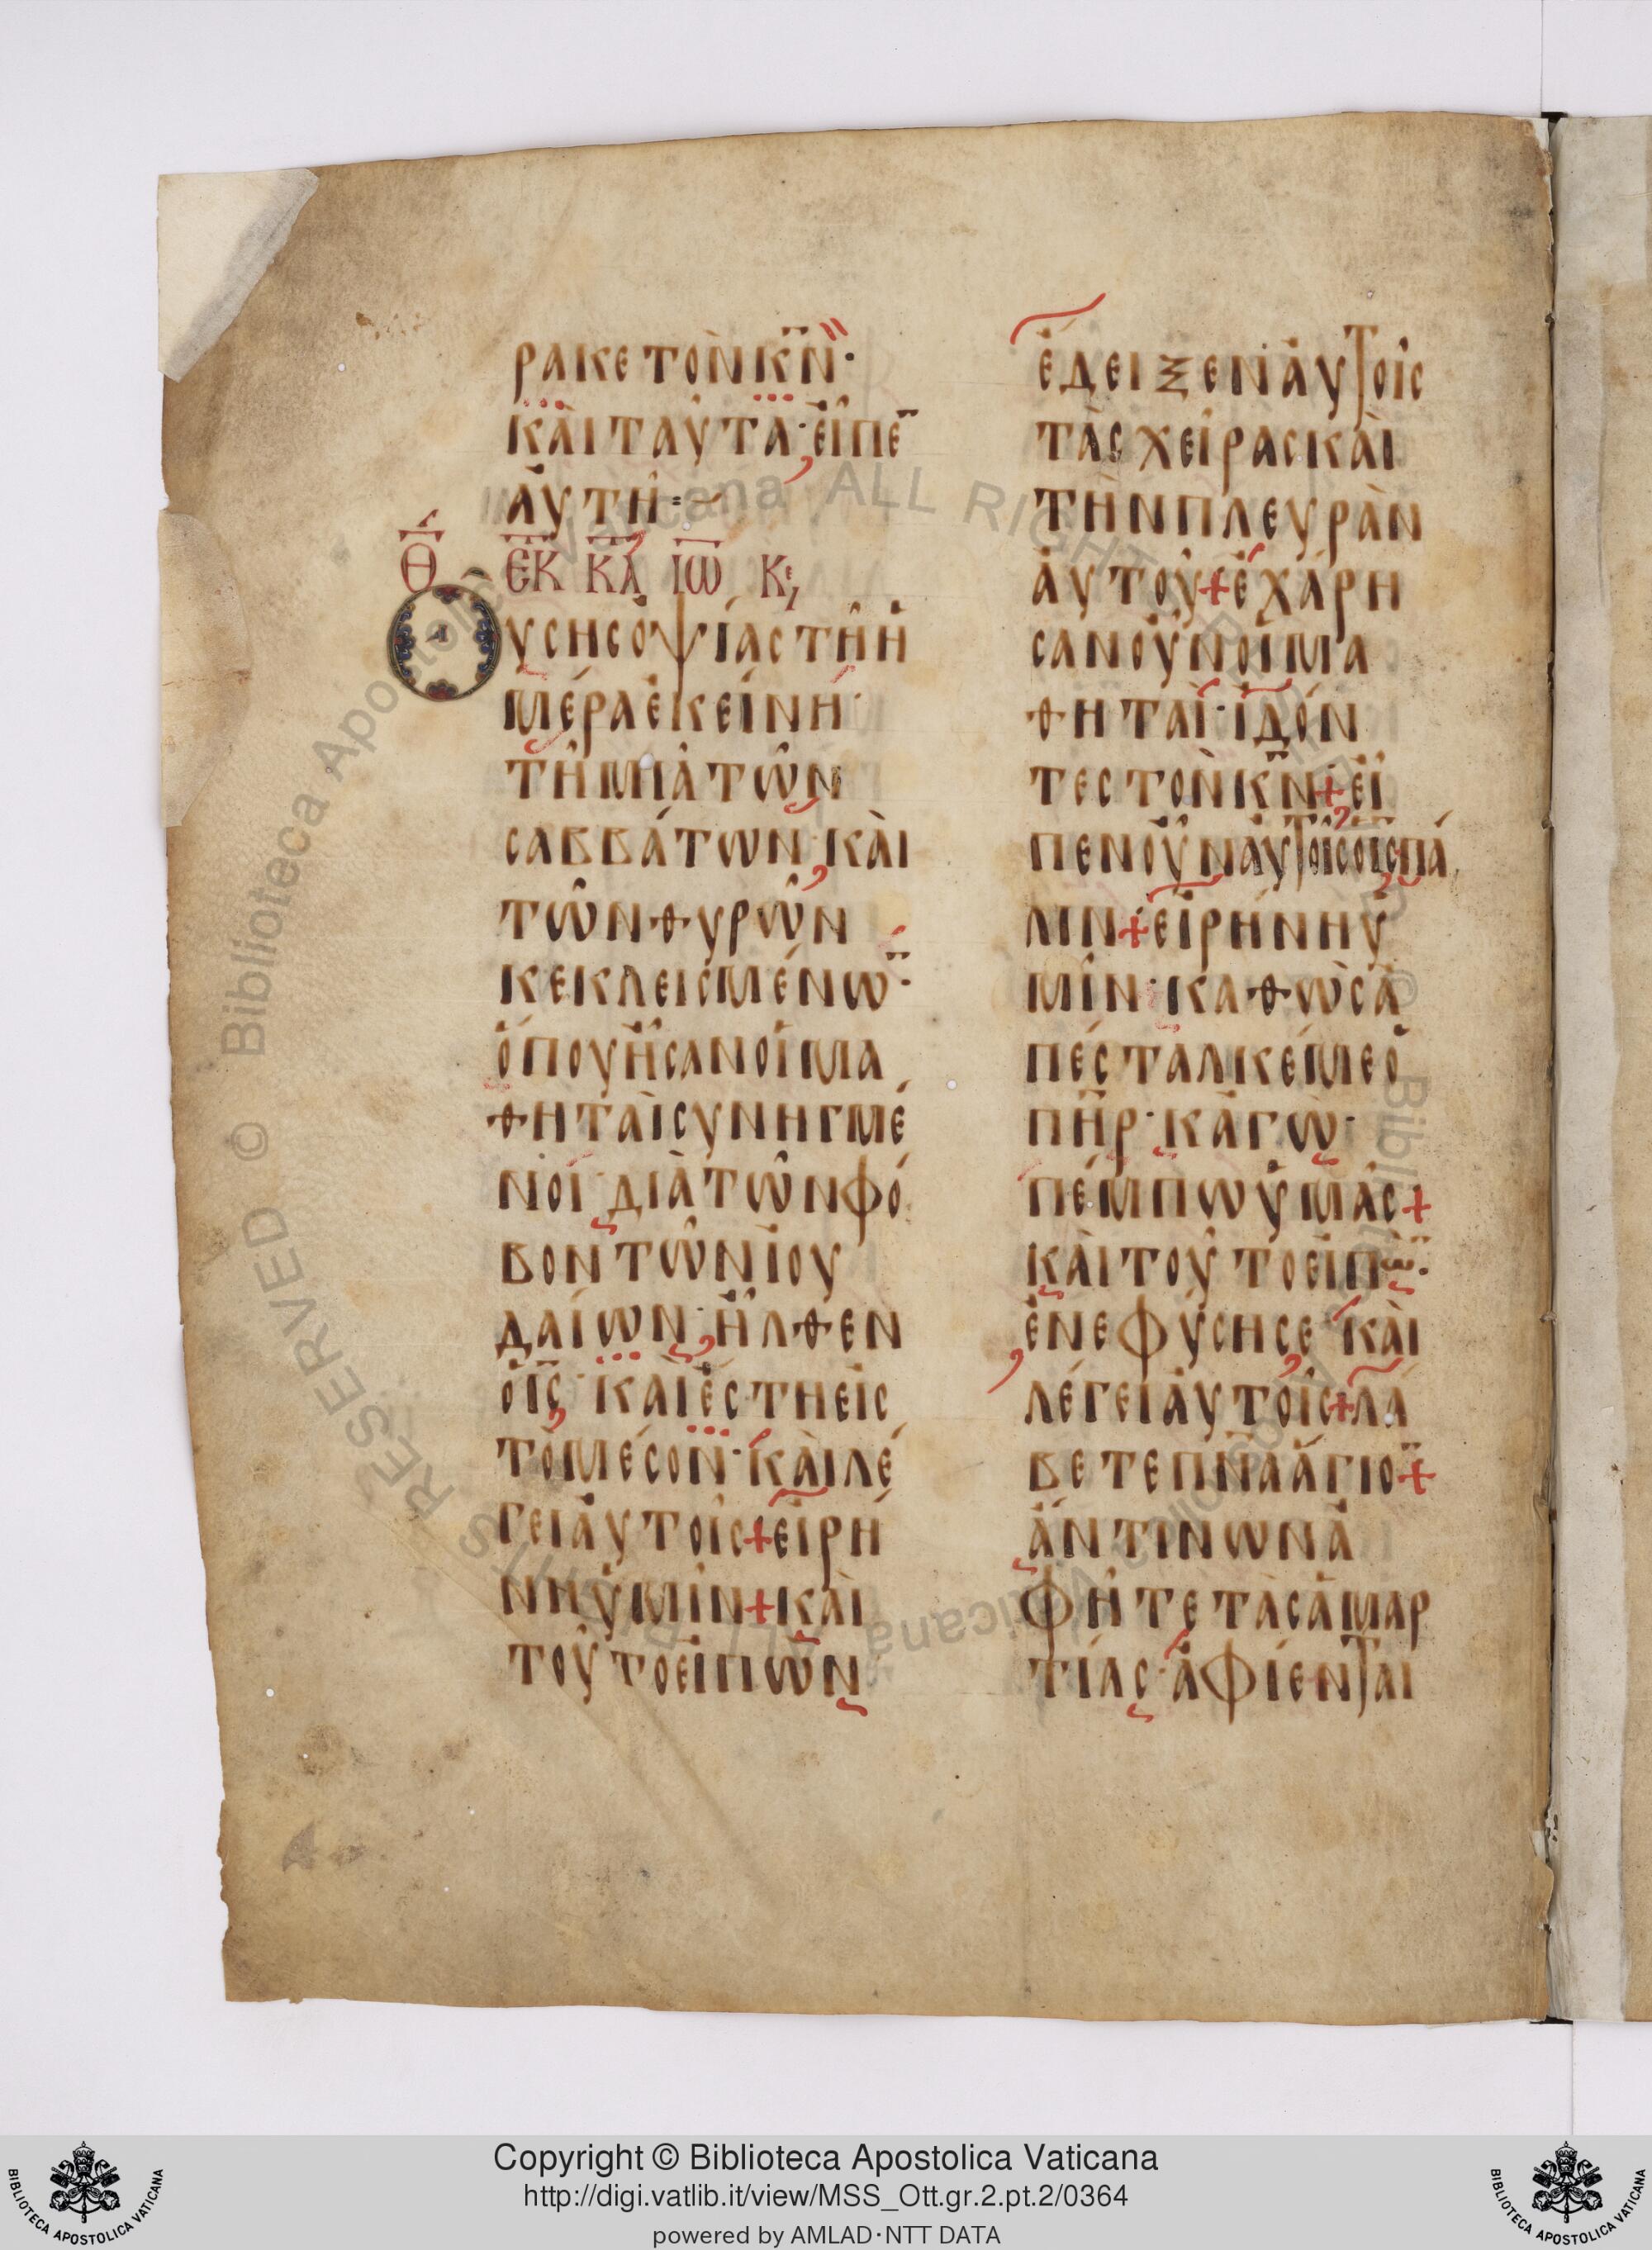 ρακε τὸν κ̅ν̅·
καὶ ταῦτα· εἶπε̅
ἀυτῆ·
Θ̅ ἐκ κλ ιω κ,
Ουσης οψίας τῆ ἡ
μέρα ἐκείνη·
τῆ μιᾶ τῶν
σαββάτων, καὶ
τῶν θυρῶν
κεκλεισμένω̅·
ὅπου ἦσαν οἱ μα
θηταὶ συνηγμέ
νοι· διὰ τὼν φό
βον τῶν ἰου
δαίων· ἦλθεν
ὁ ι̅ς̅· καὶ ἔστη εἰς
τὸ μέσον· καὶ λέ
γει ἀυτοῖς + εἰρή
νη ὑμῖν + καὶ
τοῦτο εἰπὼν
ἔδειξεν ἀυτοῖς
τὰς χεῖρας καὶ
τὴν πλευρὰν
ἀυτοῦ + ἐχάρη
σαν οὖν οἱ μα
θηταί· ἰδόν
τες τὸν κ̅ν̅ + εἶ
πεν οὖν ἀυτοῖς ὁ ι̅ς̅ πά
λιν + εἰρήνη ὑ
μῖν· καθὼς ἀ
πέσταλκέ με ὁ
π̅η̅ρ̅· κἀγὼ·
πέμπω ὑμᾶς +
καὶ τοῦτο εἰπὼ̅·
ἐνεφύσησε καὶ
λέγει ἀυτοῖς + λά
βετε π̅ν̅α̅ ἅγιο̅ +
ἄν τινων ἀ
φῆτε τὰς ἁμαρ
τίας· ἀφίενται
© Biblioteca Apostolica Vaticana ALL RIGHTS RESERVED © Biblioteca Apostolica Vaticana ALL RIGHTS RESERVED
Copyright © Biblioteca Apostolica Vaticana
http://digi.vatlib.it/view/MSS_Ott.gr.2.pt.2/0364
powered by AMLAD·NTT DATA
BIBLIOTECA APOSTOLICA VATICANA
BIBLIOTECA APOSTOLICA VATICANA